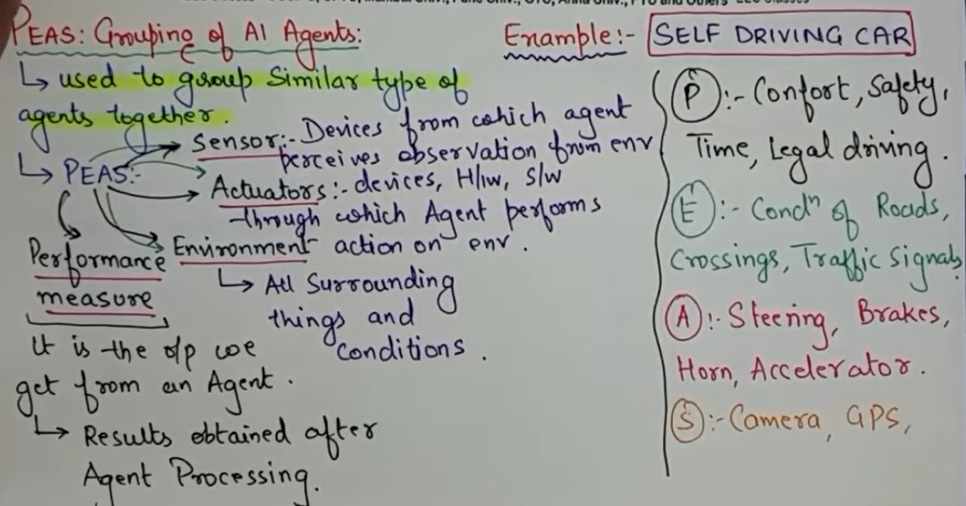 PEAS: Grouping of AI Agents:
↳ used to group Similar type of
agents together.
↳ PEAS:-
Sensor:- Devices from which agent
perceives observation from env
Actuators:- devices, H/w, S/w
through which Agent performs
action on env.
Environment
↳ All Surrounding
things and
conditions.
Performance
measure
It is the o/p we
get from an Agent.
↳ Results obtained after
Agent Processing.
Example:- SELF DRIVING CAR
(P):- Confort, Safety,
Time, Legal driving.
(E):- Condⁿ of Roads,
Crossings, Traffic Signals
(A):- Steering, Brakes,
Horn, Accelerator.
(S):- Camera, GPS,